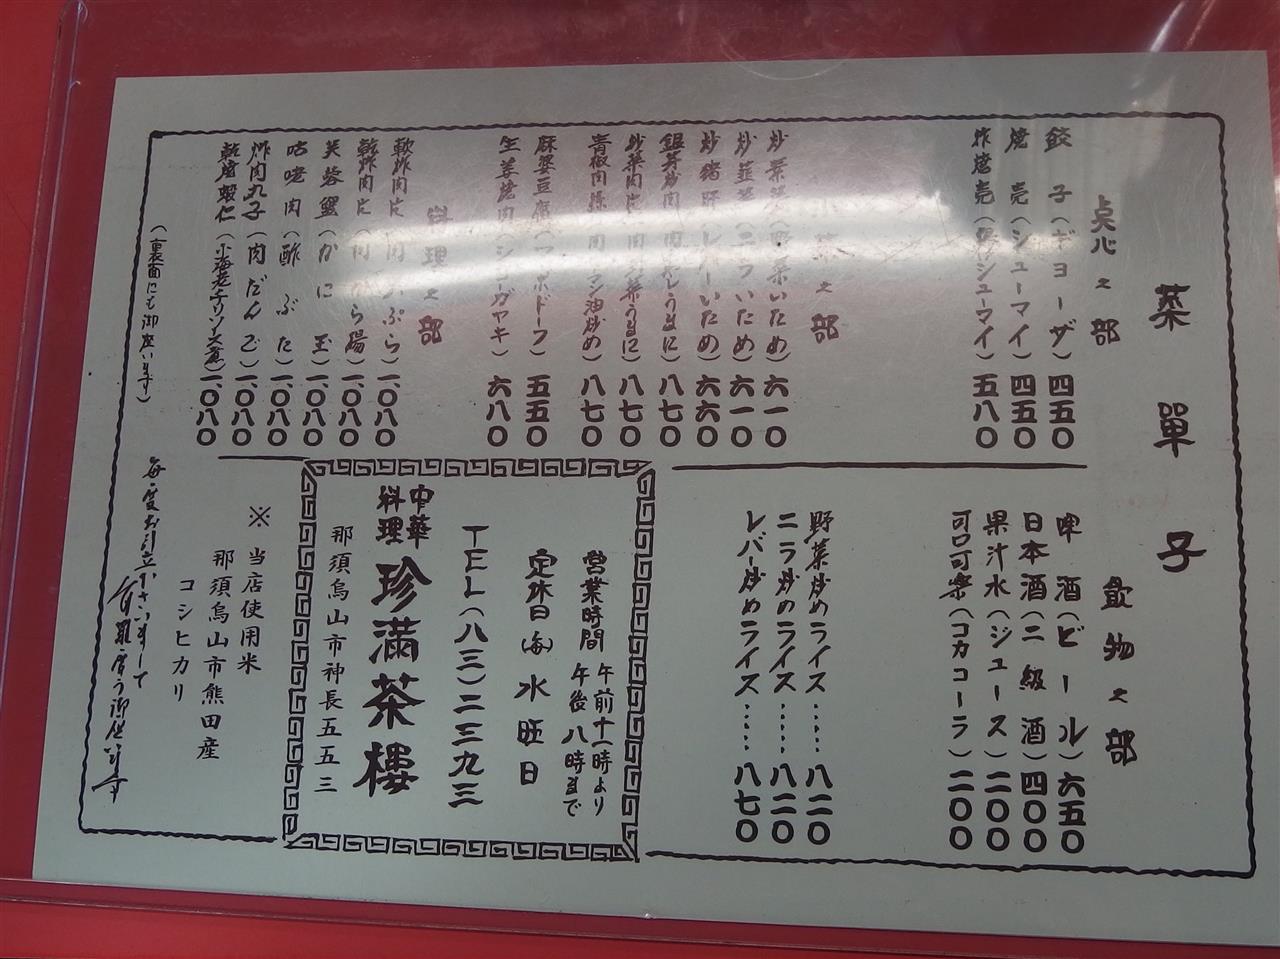 菜單子
点心之部
餃子(ギョーザ)四五〇
焼売(シューマイ)四五〇
炸焼売(シューマイ)五八〇
菜之部
炒菜(野菜いため)六一〇
炒韮菜(ニラいため)六一〇
炒猪肝(レバーいため)六六〇
銀芽炒肉(うまに)八七〇
炒菜肉片(肉菜うまに)八七〇
青椒肉絲(肉マン油炒め)八七〇
麻婆豆腐(マーボドーフ)五五〇
生姜焼肉(ショーガヤキ)六八〇
料理之部
軟炸肉片(肉天ぷら)一、〇八〇
乾炸肉片(肉から揚)一、〇八〇
芙蓉蟹(かに玉)一、〇八〇
咕咾肉(酢ぶた)一、〇八〇
炸肉丸子(肉だんご)一、〇八〇
乾焼蝦仁(小海老チリソース煮)一、〇八〇
(裏面にも御座います)
飲物之部
啤酒(ビール)六五〇
日本酒(二級酒)四〇〇
果汁水(ジュース)二〇〇
可口可楽(コカコーラ)二〇〇
野菜炒めライス……八二〇
ニラ炒めライス……八二〇
レバー炒めライス……八七〇
営業時間 午前十一時より
午後八時まで
定休日(毎)水旺日
TEL(八三)二三九三
中華料理 珍満茶樓
那須烏山市神長五五三
※当店使用米
那須烏山市熊田産
コシヒカリ
毎度お引立下さいまして
有難度う御座います